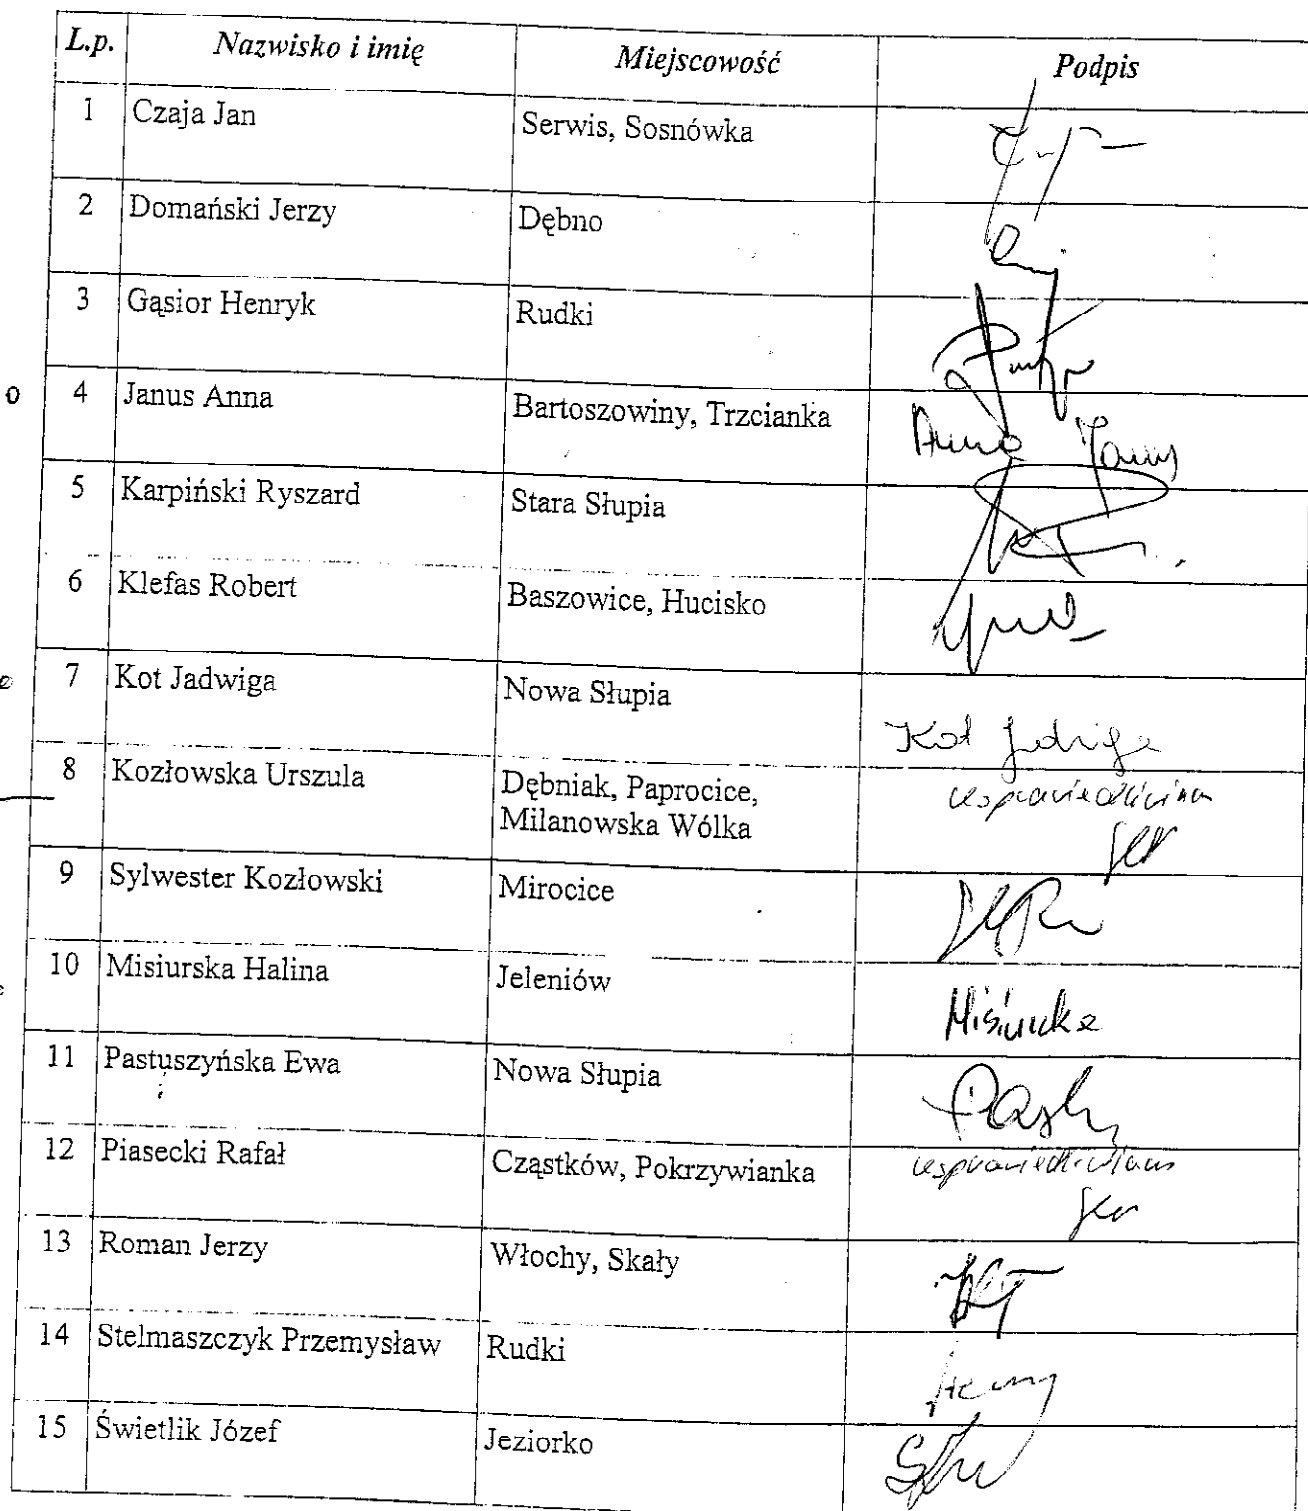 L.p. Nazwisko i imię Miejscowość Podpis
1 Czaja Jan Serwis, Sosnówka
2 Domański Jerzy Dębno
3 Gąsior Henryk Rudki
4 Janus Anna Bartoszowiny, Trzcianka Anna Janus
5 Karpiński Ryszard Stara Słupia
6 Klefas Robert Baszowice, Hucisko
7 Kot Jadwiga Nowa Słupia Kot Jadwiga
8 Kozłowska Urszula Dębniak, Paprocice,
Milanowska Wólka
9 Sylwester Kozłowski Mirocice
10 Misiurska Halina Jeleniów
11 Pastuszyńska Ewa Nowa Słupia
12 Piasecki Rafał Cząstków, Pokrzywianka
13 Roman Jerzy Włochy, Skały
14 Stelmaszczyk Przemysław Rudki
15 Świetlik Józef Jeziorko